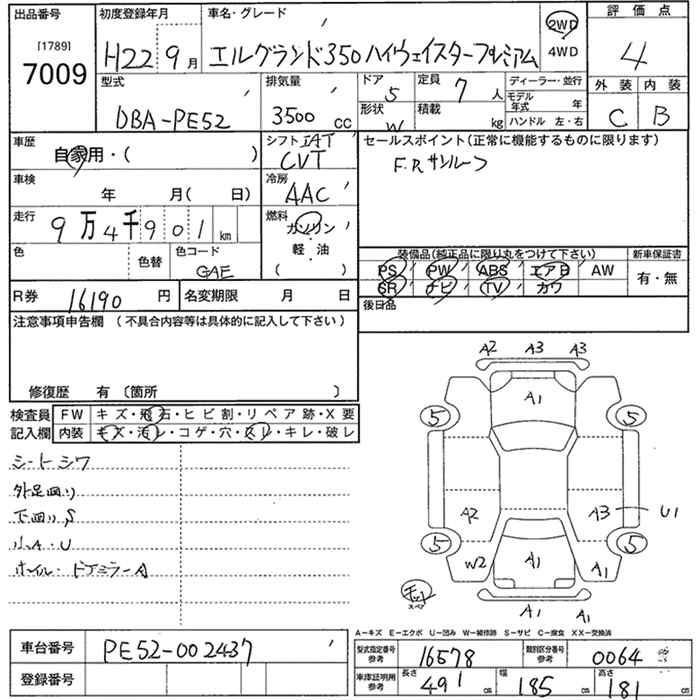 出品番号 初度登録年月 車名・グレード 評価点
[1789]
7009
H22 9月 エルグランド350ハイウェイスタープレミアム 2WD 4WD 4
型式 排気量 ドア 5 定員 7人 ディーラー・並行 外装 内装
DBA-PE52 3500cc 形状 W 積載 kg モデル年式 年 ハンドル 左・右 C B
車歴 自家用・( ) シフト IAT CVT セールスポイント(正常に機能するものに限ります)
F.Rサンルーフ
車検 年 月( 日) 冷房 AAC
走行 9万4千901km 燃料 ガソリン・軽油 ( )
色 色替 色コード GAE
装備品(純正品に限り丸をつけて下さい) 新車保証書
PS PW ABS エアB AW 有・無
SR ナビ TV カワ
R券 16190円 名変期限 月 日 後日品
注意事項申告欄 (不具合内容等は具体的に記入して下さい)
修復歴 有 〔箇所 〕
検査員記入欄 FW キズ・飛石・ヒビ割・リペア跡・X要
内装 キズ・汚レ・コゲ・穴・スレ・キレ・破レ
シートシワ
外足回り
下回りS
小A・U
ホイル・ドアミラーA
A2 A3 A3
A1
5 5
A2 A3 U1
5 5
W2 A1 A1
スペア
A1 A1
A-キズ E-エクボ U-凹み W-補修跡 S-サビ C-腐食 XX-交換済
車台番号 PE52-002437
登録番号
型式指定番号 参考 16578 類別区分番号 参考 0064
車庫証明用 参考 長さ 491cm 幅 185cm 高さ 181cm